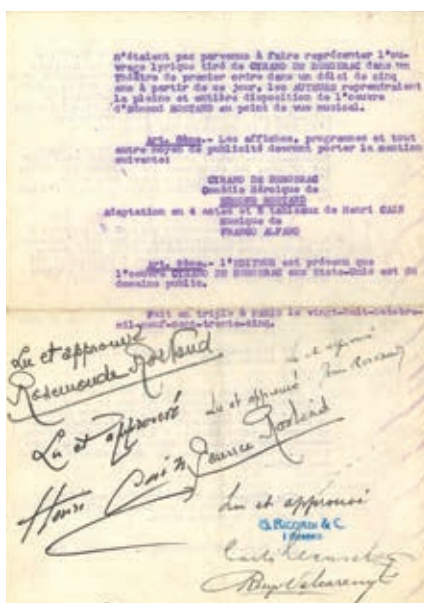 n'étaient pas parvenus à faire représenter l'ou-
vrage lyrique tiré de CYRANO DE BERGERAC dans un
Théâtre de premier ordre dans un délai de cinq
ans à partir de ce jour, les AUTEURS reprendraient
la pleine et entière disposition de l'oeuvre
d'Edmond ROSTAND au point de vue musical.
Art. 8ème.- Les affiches, programmes et tout
autre moyen de publicité devront porter la mention
suivante:
CYRANO DE BERGERAC
Comédie Héroïque de
EDMOND ROSTAND
adaptation en 4 actes et 5 tableaux de Henri CAIN
Musique de
FRANCO ALFANO
Art. 9ème.- L'EDITEUR est prévenu que
l'oeuvre CYRANO DE BERGERAC aux Etats-Unis est du
domaine public.
Fait en triple à PARIS le vingt-huit octobre
mil-neuf-cent-trente-cinq.
Lu et approuvé
Rosemonde Rostand
Lu et approuvé
Lu et approuvé
Jean Rostand
Lu et approuvé
Henri Cain
Maurice Rostand
Lu et approuvé
G. RICORDI & C.